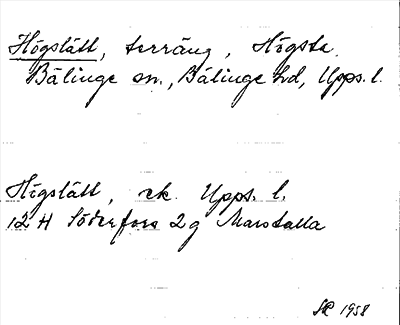 Högslätt, terräng, Högsta
Bälinge sn., Bälinge hd, Upps. l.
Högslätt, ek. Upps. l.
12 H Söderfors 2 g Marstalla
1958